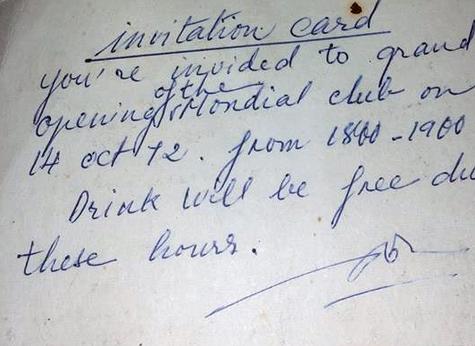 invitation card
you're invided to grand
opening of the Mondial club on
14 oct 72. from 1800-1900
Drink will be free du
these hours.